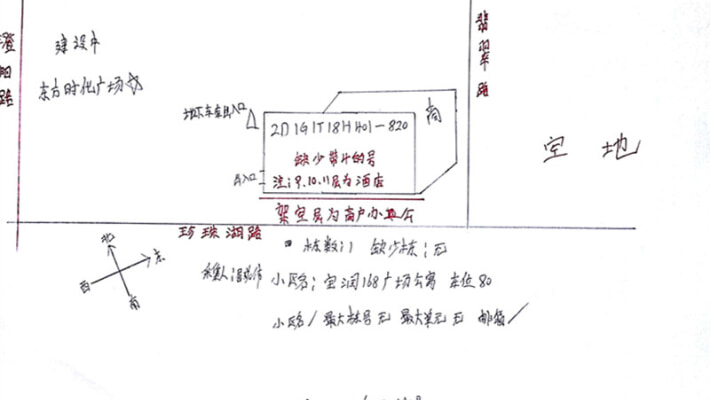 建设中
东方时代广场
翡翠路
空地
商
地下车库出入口
2D 1G 1T 18H 401-820
缺少带4的号
注:9.10.11层为酒店
出入口
架空层为商户办公
珍珠湖路
栋数:1 缺少栋:无
北
东
西
南
小区名:宝润168广场公寓 车位80
小区名/ 最大栋号无 最大单元无 邮箱/